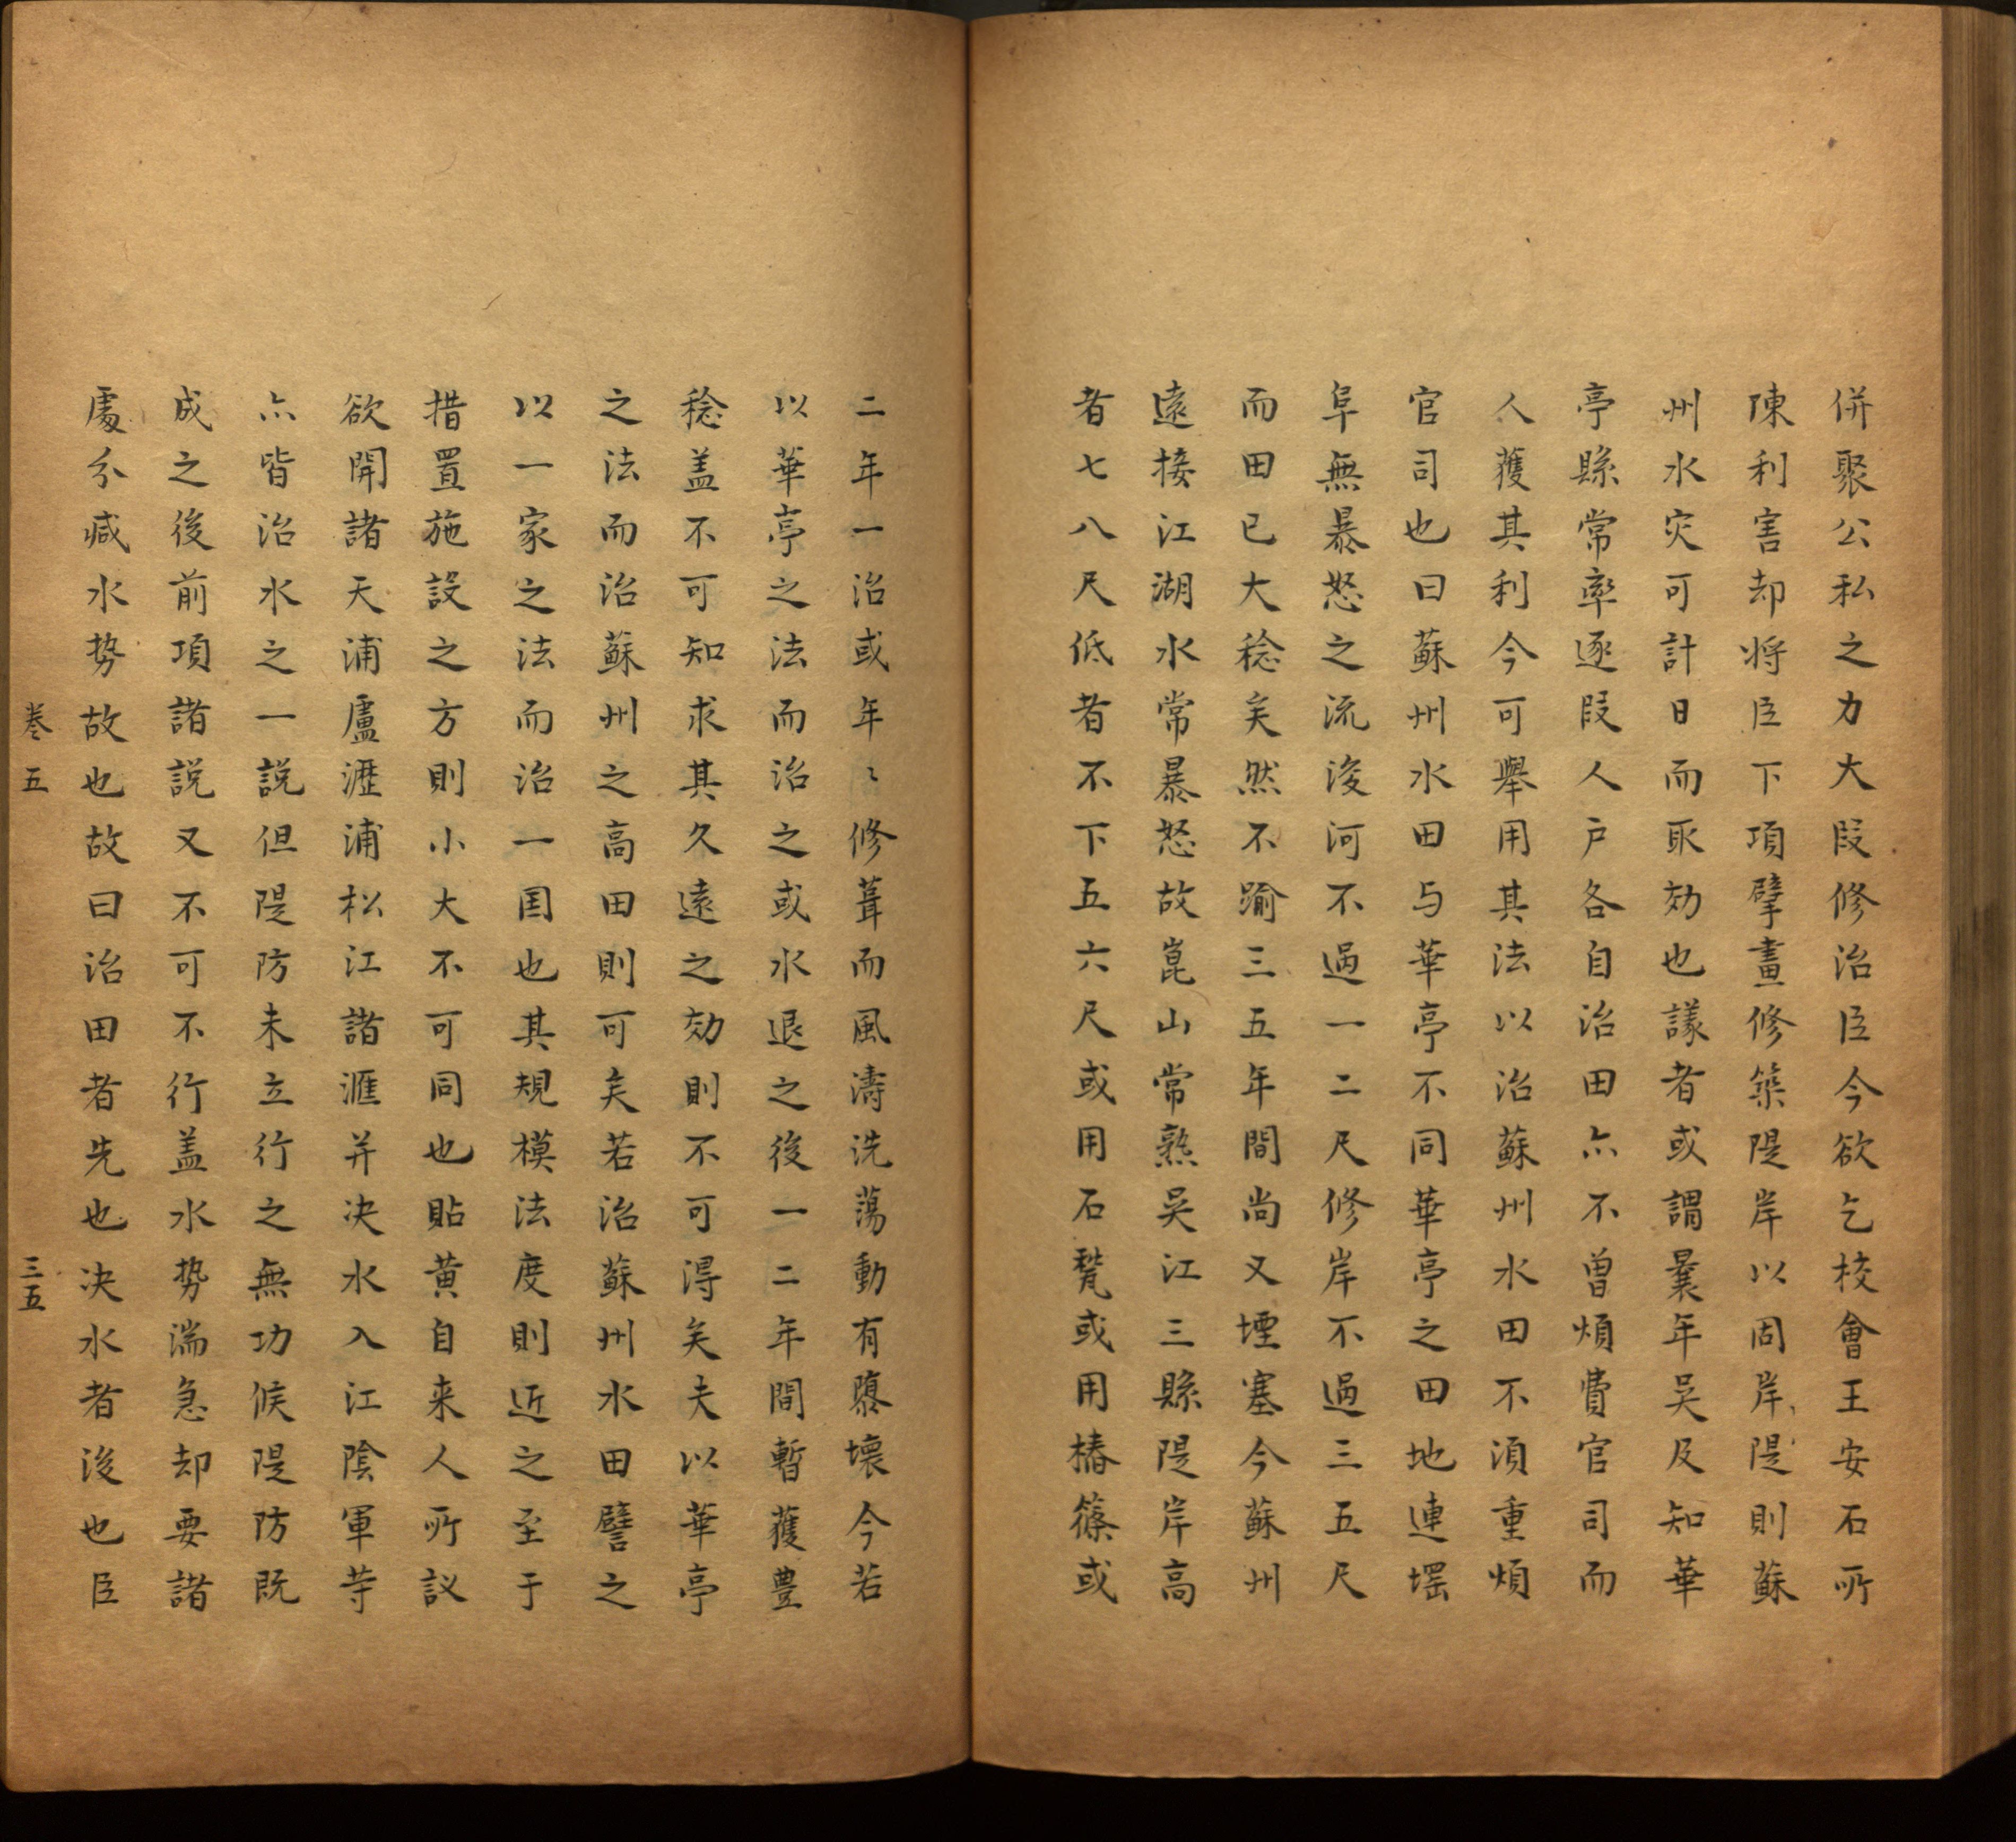 併聚公私之力大段修治臣今欲乞校會王安石所
陳利害却将臣下項擘畫修築隄岸以固岸隄則蘇
州水灾可計日而取効也議者或謂曩年吴及知華
亭縣常率逐段人户各自治田亦不曾煩費官司而
人獲其利今可舉用其法以治蘇州水田不須重煩
官司也曰蘇州水田与華亭不同華亭之田地連堽
阜無暴怒之流浚河不過一二尺修岸不過三五尺
而田已大稔矣然不踰三五年間尚又堙塞今蘇州
遠接江湖水常暴怒故崑山常熟吴江三縣隄岸高
者七八尺低者不下五六尺或用石甃或用樁篠或
二年一治或年〻修葺而風濤洗蕩動有隳壞今若
以華亭之法而治之或水退之後一二年間暫獲豊
稔盖不可知求其久遠之効則不可得矣夫以華亭
之法而治蘇州之高田則可矣若治蘇州水田譬之
以一家之法而治一国也其規模法度則近之至于
措置施設之方則小大不可同也貼黄自来人所議
欲開諸天浦盧瀝浦松江諸滙并决水入江陰軍等
亦皆治水之一説但隄防未立行之無功候隄防既
成之後前項諸説又不可不行盖水势湍急却要諸
處分减水势故也故曰治田者先也决水者後也臣
卷五 三五